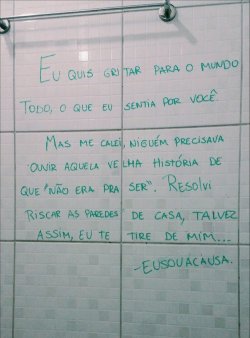 EU QUIS GRITAR PARA O MUNDO
TODO, O QUE EU SENTIA POR VOCÊ.
MAS ME CALEI, NIGUÉM PRECISAVA
OUVIR AQUELA VELHA HISTÓRIA DE
QUE "NÃO ERA PRA SER". RESOLVI
RISCAR AS PAREDES DE CASA, TALVEZ
ASSIM, EU TE TIRE DE MIM...
-EUSOUACAUSA.